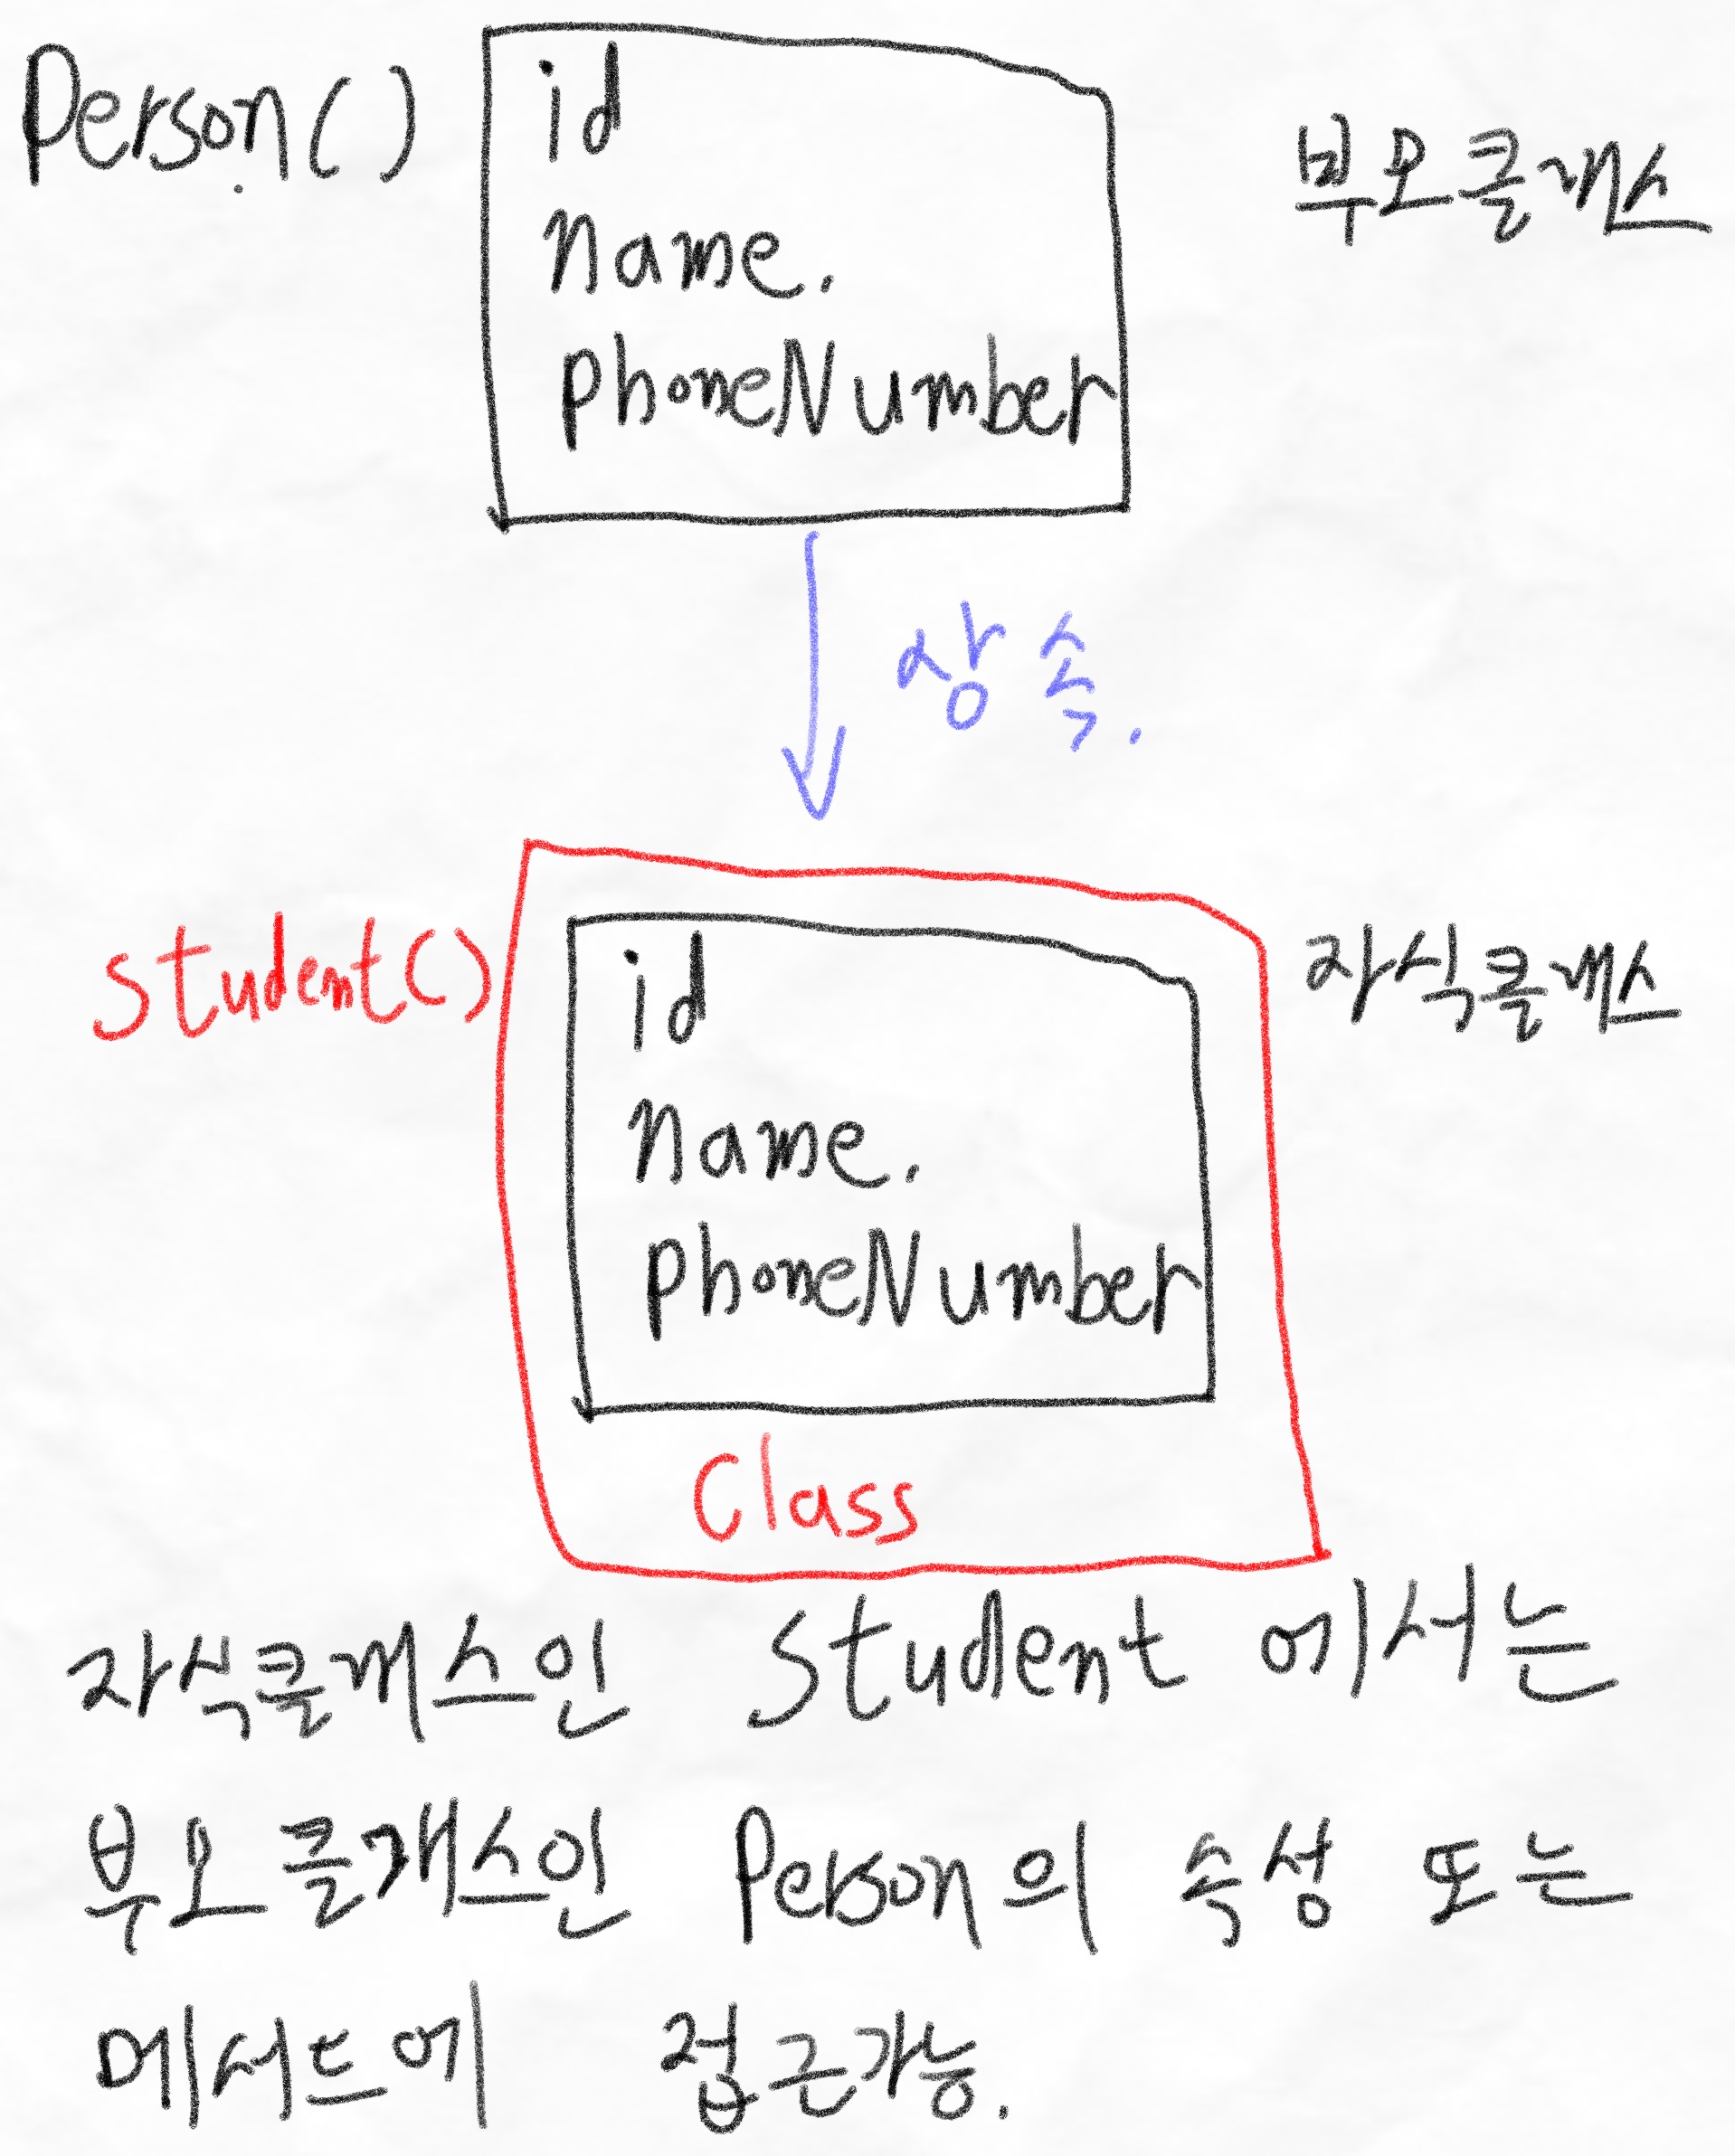 Person()
id
name.
phoneNumber
부모클래스
상속.
student()
id
name.
phoneNumber
class
자식클래스
자식클래스인 Student 에서는
부모 클래스인 Person의 속성 또는
메서드에 접근가능.